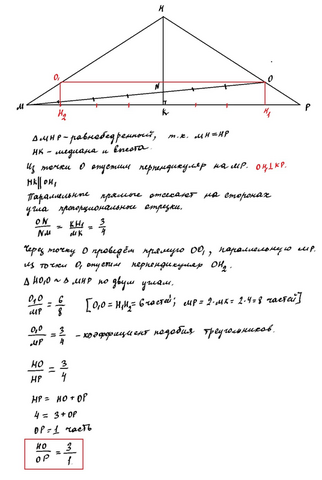 H
O₁
N
O
M
H₂
K
H₁
P
△MHP - равнобедренный, т.к. MH=HP
HK - медиана и высота.
Из точки O опустим перпендикуляр на MP. OH₁⊥KP.
HK∥OH₁
Параллельные прямые отсекают на сторонах
угла пропорциональные отрезки.
ON/NM = KH₁/MK = 3/4
Через точку O проведём прямую OO₁, параллельную MP.
Из точки O₁ опустим перпендикуляр OH₂.
△HO₁O ~ △MHP по двум углам.
O₁O/MP = 6/8 [O₁O = H₁H₂ = 6 частей; MP = 2·MK = 2·4 = 8 частей]
O₁O/MP = 3/4 - коэффициент подобия треугольников.
HO/HP = 3/4
HP = HO + OP
4 = 3 + OP
OP = 1 часть
HO/OP = 3/1